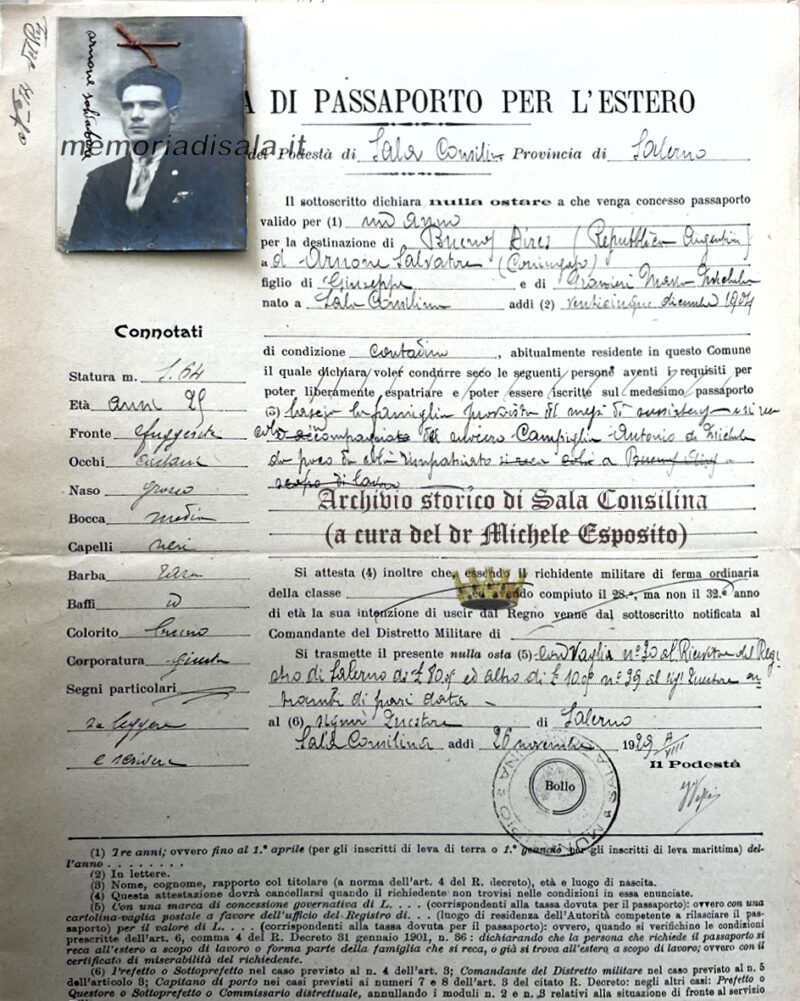 arnone salvatore
A DI PASSAPORTO PER L'ESTERO
memoriadisala.it
del Podestà di Sala Consilina Provincia di Salerno
Il sottoscritto dichiara nulla ostare a che venga concesso passaporto
valido per (1) un anno
per la destinazione di Buenos Aires (Repubblica Argentina)
a d Arnone Salvatore (Coniugato)
figlio di Giuseppe e di Granieri Maria Michela
nato a Sala Consilina addì (2) venticinque dicembre 1904
Connotati
di condizione contadino, abitualmente residente in questo Comune
il quale dichiara voler condurre seco le seguenti persone aventi i requisiti per
poter liberamente espatriare e poter essere iscritte sul medesimo passaporto
(3) lascia la famiglia provvista di mezzi di sussistenza e si
accompagnato dal Campiglia Antonio di Michele
da poco rimpatriato a Buenos Aires
scopo di lavoro
Statura m. 1.64
Età anni 25
Fronte sfuggente
Occhi castani
Naso grosso
Bocca media
Capelli neri
Barba rasa
Baffi id
Colorito bruno
Corporatura giusta
Segni particolari
sa leggere
e scrivere
Archivio storico di Sala Consilina
(a cura del dr Michele Esposito)
Si attesta (4) inoltre che, essendo il richidente militare di ferma ordinaria
della classe ed avendo compiuto il 28.º, ma non il 32.º anno
di età la sua intenzione di uscir dal Regno venne dal sottoscritto notificata al
Comandante del Distretto Militare di
Si trasmette il presente nulla osta (5) con vaglia nº 30 al Ricevitore del Regi
stro di Salerno di £ ed altro di £ nº 29 al Sig. Questore en
trambi di pari data
al (6) Signor Questore di Salerno
Sala Consilina addì 26 novembre 1929 A/VIII
Il Podestà
Bollo
(1) Tre anni; ovvero fino al 1.º aprile (per gli inscritti di leva di terra o 1.º gennaio per gli inscritti di leva marittima) del-
l'anno . . . . . . . .
(2) In lettere.
(3) Nome, cognome, rapporto col titolare (a norma dell'art. 4 del R. decreto), età e luogo di nascita.
(4) Questa attestazione dovrà cancellarsi quando il richiedente non trovisi nelle condizioni in essa enunciate.
(5) Con una marca di concessione governativa di L. . . . (corrispondenti alla tassa dovuta per il passaporto): ovvero con una
cartolina-vaglia postale a favore dell'ufficio del Registro di. . . (luogo di residenza dell'Autorità competente a rilasciare il pas-
saporto) per il valore di L. . . . (corrispondenti alla tassa dovuta per il passaporto): ovvero, quando si verifichino le condizioni
prescritte dell'art. 6, comma 4 del R. Decreto 31 gennaio 1901, n. 36 : dichiarando che la persona che richiede il passaporto si
reca all'estero a scopo di lavoro o forma parte della famiglia che si reca, o già si trova all'estero a scopo di lavoro; ovvero con il
certificato di miserabilità del richiedente.
(6) Prefetto o Sottoprefetto nel caso previsto al n. 4 dell'art. 3; Comandante del Distretto militare nel caso previsto al n. 5
dell'articolo 3; Capitano di porto nei casi previsti ai numeri 7 e 8 dell'art. 3 del citato R. Decreto: negli altri casi: Prefetto o
Questore o Sottoprefetto o Commissario distrettuale, annullando i moduli n. 2 e n. 3 relativi alla situazione di fronte al servizio